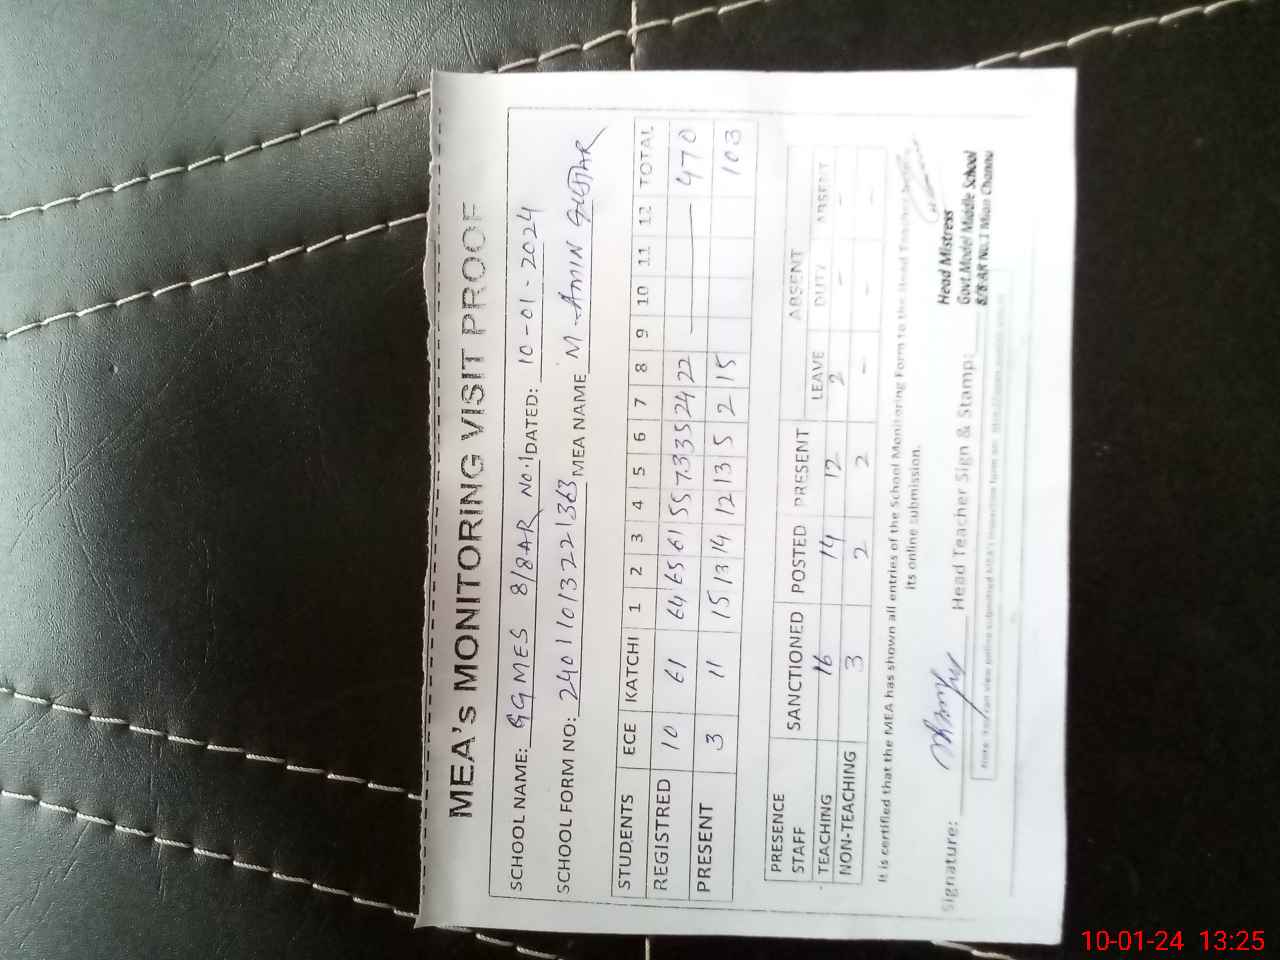 MEA's MONITORING VISIT PROOF
SCHOOL NAME: GGMES 8/8AR No.1 DATED: 10-01-2024
SCHOOL FORM NO: 24011013221363 MEA NAME M. AMIN
STUDENTS ECE KATCHI 1 2 3 4 5 6 7 8 9 10 11 12 TOTAL
REGISTRED 10 61 64 65 61 55 73 35 24 22 — 470
PRESENT 3 11 15 13 14 12 13 5 2 15 103
PRESENCE ABSENT
STAFF SANCTIONED POSTED PRESENT LEAVE DUTY ABSENT
TEACHING 16 14 12 2 - -
NON-TEACHING 3 2 2 - - -
It is certified that the MEA has shown all entries of the School Monitoring Form to the Head Teacher before
its online submission.
Signature: Head Teacher Sign & Stamp:
Head Mistress
Govt.Model Middle School
8/8-AR No.1 Mian Channu
Note: You can view online submitted MEA's
10-01-24 13:25